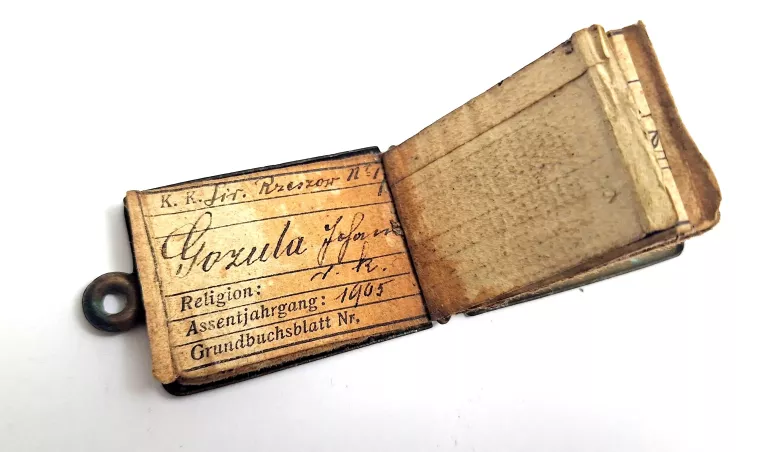 K. K. Lir. Rzeszow No 17
Gozula Johann
Religion: r. k.
Assentjahrgang: 1905
Grundbuchsblatt Nr.